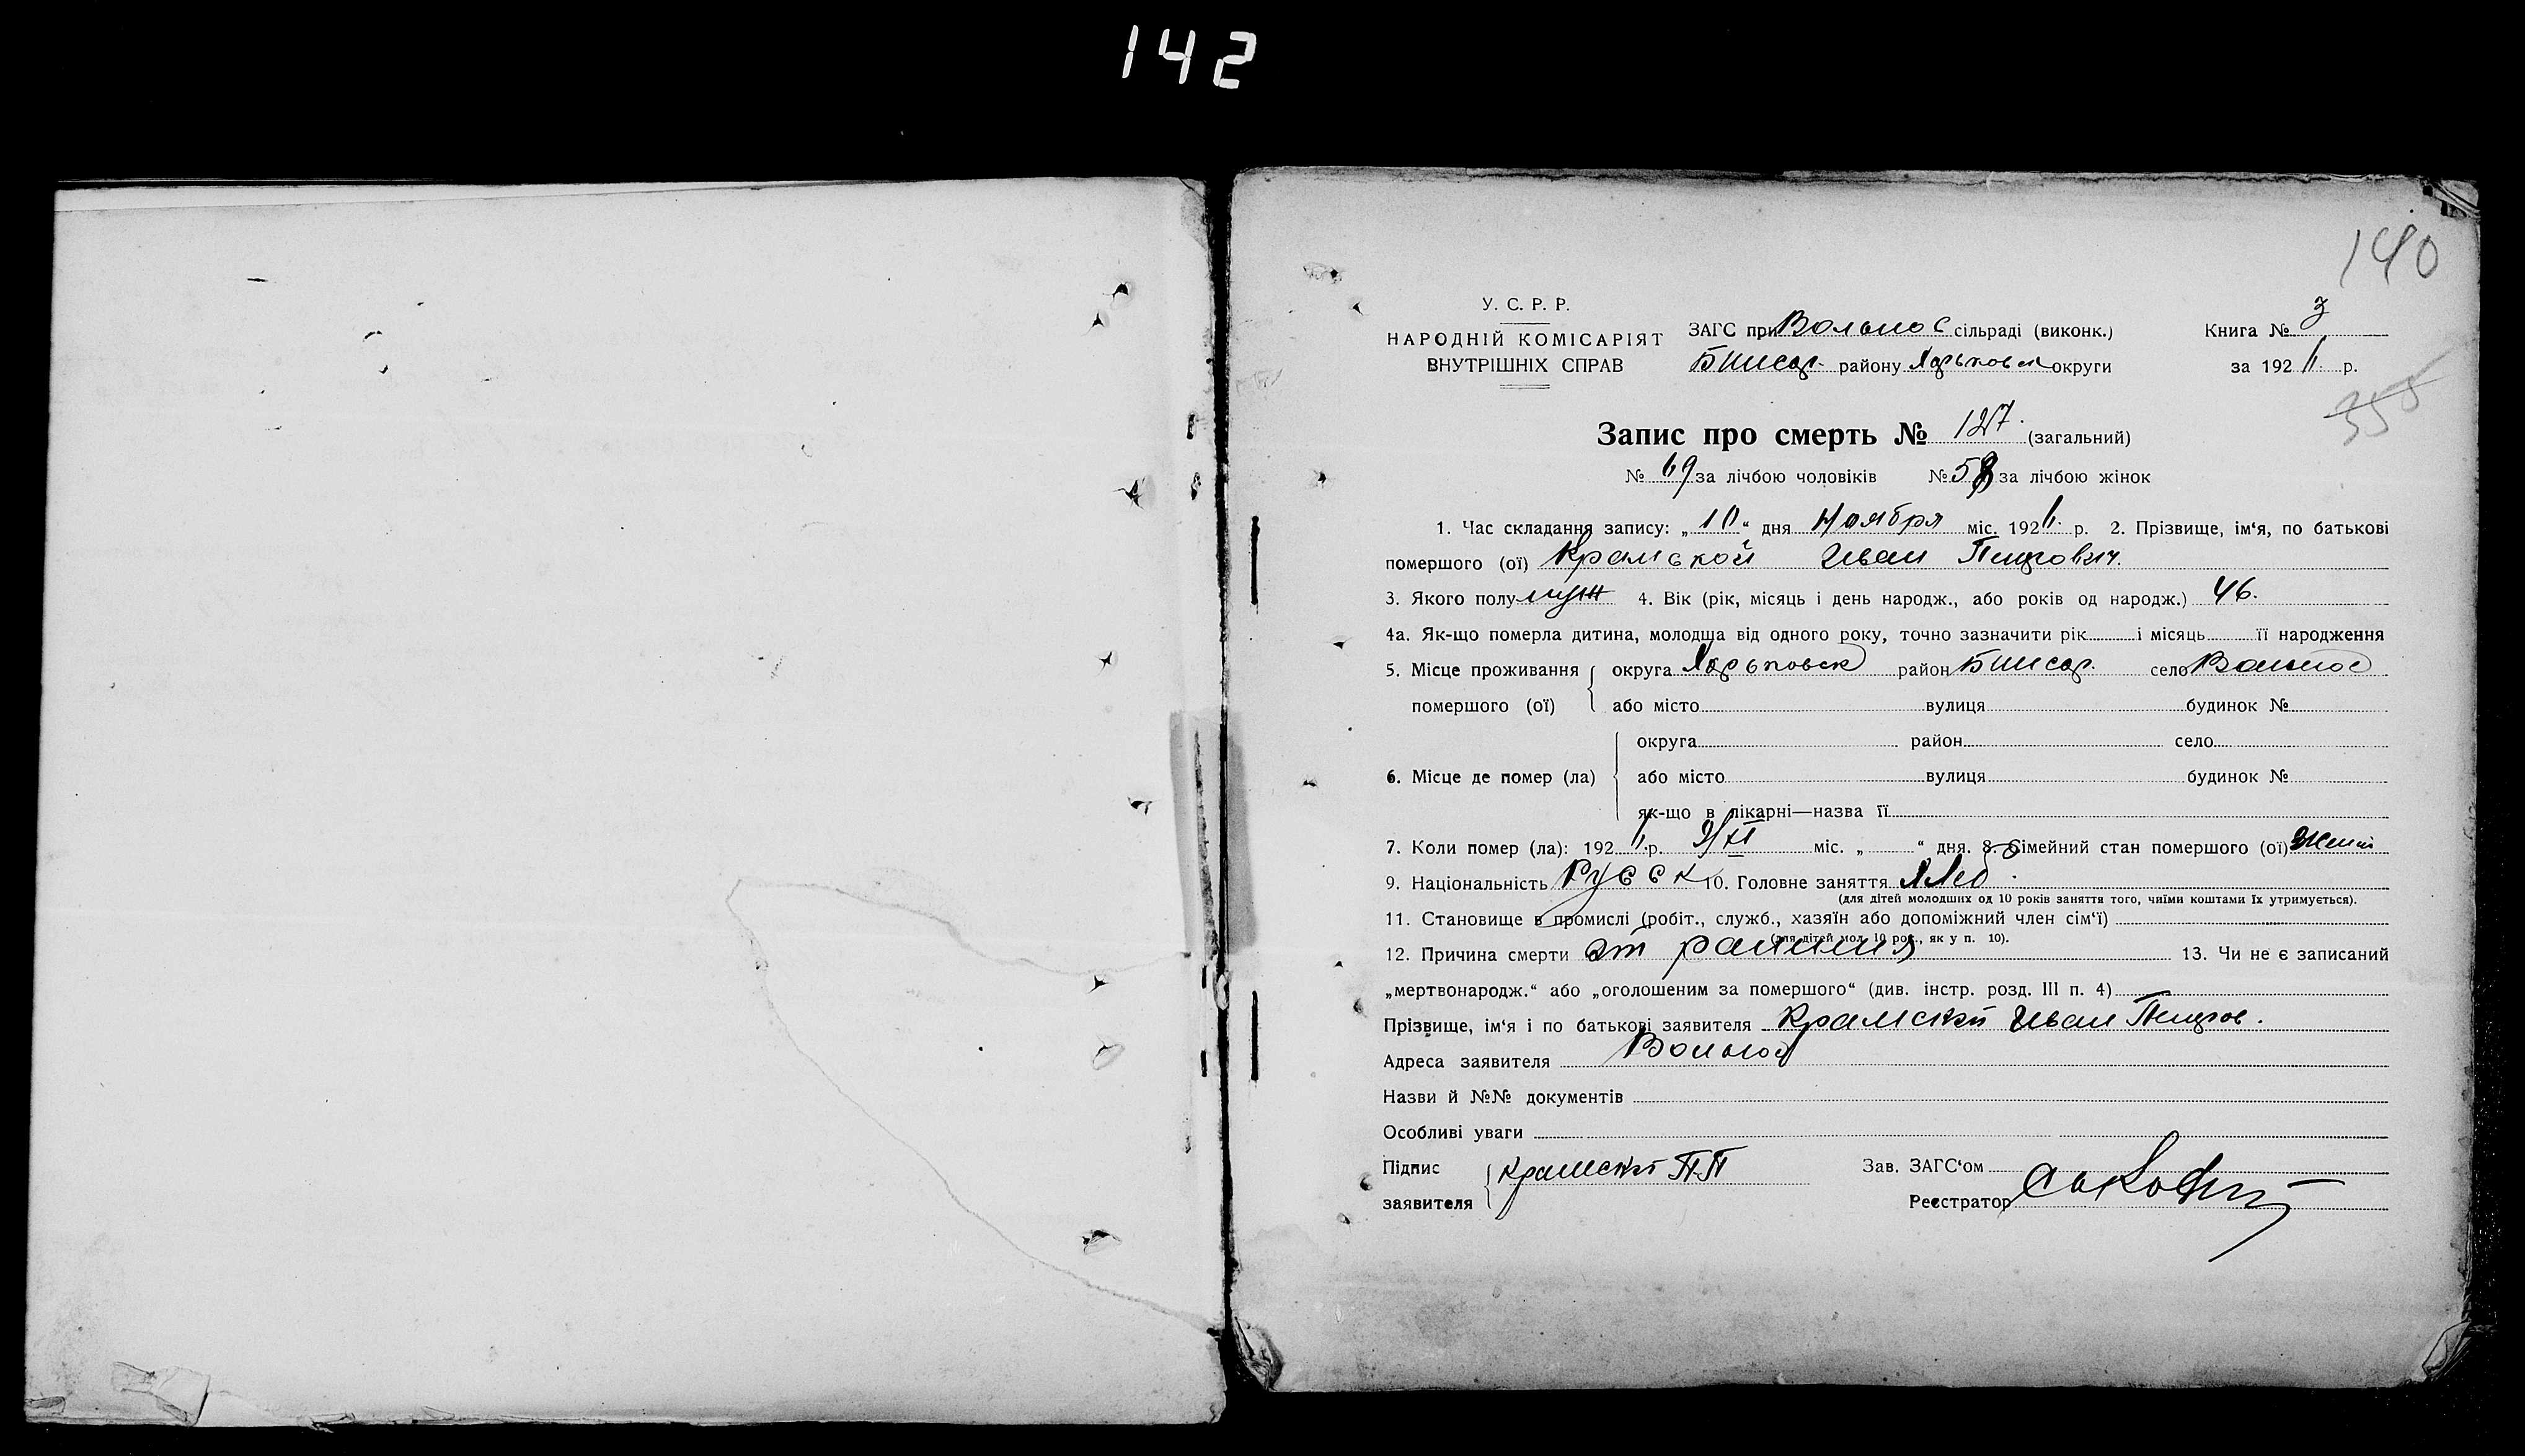 142
140
У. С. Р. Р.
НАРОДНІЙ КОМІСАРІЯТ
ВНУТРІШНІХ СПРАВ
ЗАГС при Вольнос сільраді (виконк.)
района Харьковск округи
Книга № 3
за 1926 р.
355
Запис про смерть № 127. (загальний)
№ 69 за лічбою чоловіків № 58 за лічбою жінок
1. Час складання запису: „10“ дня Ноября міс. 1926. р. 2. Прізвище, ім‘я, по батькові
помершого (ої) Крамской Иван Петрович.
3. Якого полу муж 4. Вік (рік, місяць і день народж., або років од народж.) 46.
4а. Як-що померла дитина, молодша від одного року, точно зазначити рік і місяць її народження
5. Місце проживання округа Харьковск район село
помершого (ої) або місто вулиця будинок №
округа район село
6. Місце де помер (ла) або місто вулиця будинок №
як-що в лікарні—назва її
7. Коли помер (ла): 1926. р. 9/XI міс. „ “ дня. 8. Сімейний стан помершого (ої)
9. Національність Русск 10. Головне заняття Хлеб.
(для дітей молодших од 10 років заняття того, чиїми коштами їх утримується).
11. Становище в промислі (робіт., служб., хазяїн або допоміжний член сім‘ї)
(для дітей мол. 10 рок., як у п. 10).
12. Причина смерти от ранения 13. Чи не є записаний
„мертвонародж.“ або „оголошеним за помершого“ (див. інстр. розд. III п. 4)
Прізвище, ім‘я і по батькові заявителя Крамской Иван Петров.
Адреса заявителя
Назви й №№ документів
Особливі уваги
Підпис Крамской П П
заявителя
Зав. ЗАГС‘ом
Реєстратор